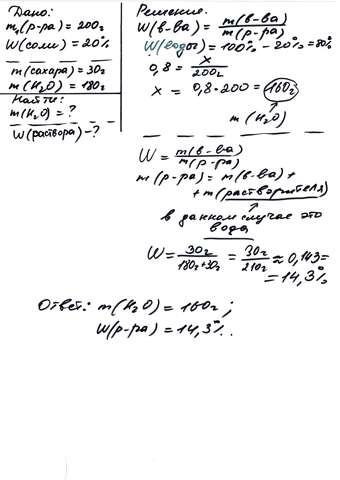 Дано:
m₁(р-ра) = 200г
W(соли) = 20%
m(сахара) = 30г
m(H₂O) = 180г
Найти:
m(H₂O) = ?
W(раствора) - ?
Решение.
W(в-ва) = m(в-ва) / m(р-ра)
W(воды) = 100% - 20% = 80%
0,8 = x / 200г
x = 0,8 · 200 = 160г
m(H₂O)
W = m(в-ва) / m(р-ра)
m(р-ра) = m(в-ва) +
+ m(растворителя)
в данном случае это
вода
W = 30г / 180г+30г = 30г / 210г ≈ 0,143 =
= 14,3%
Ответ: m(H₂O) = 160г;
W(р-ра) = 14,3%.